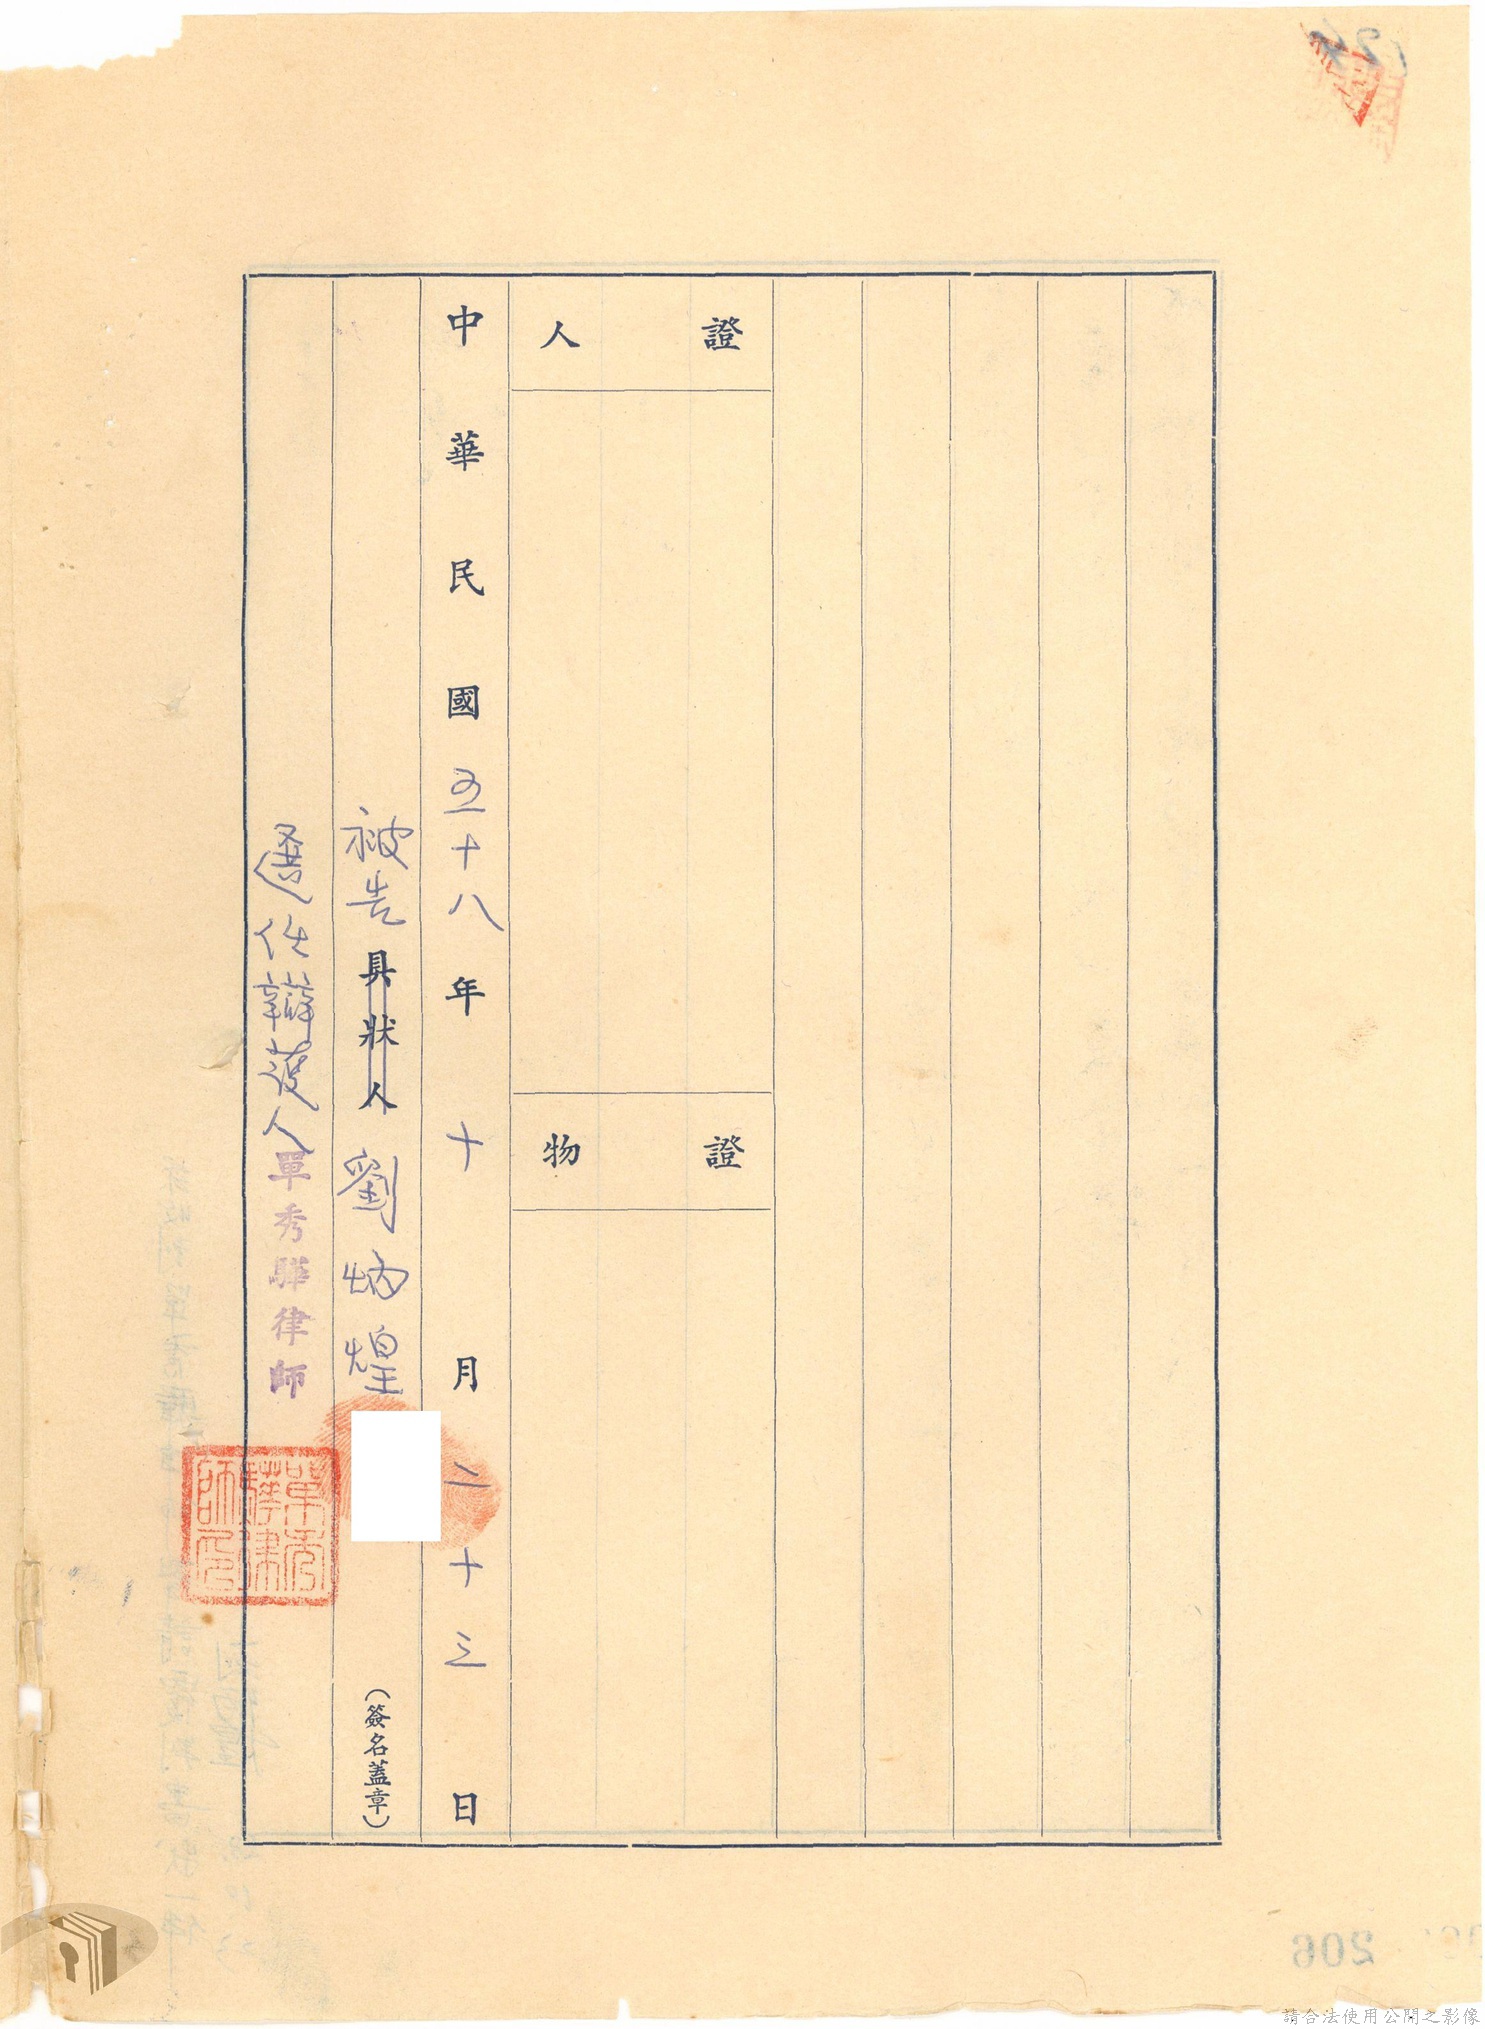 證人
證物
中華民國五十八年十月二十三日
被告具狀人劉炳煌
(簽名蓋章)
選任辯護人單秀驊律師
單秀驊律師印
206
請合法使用公開之影像